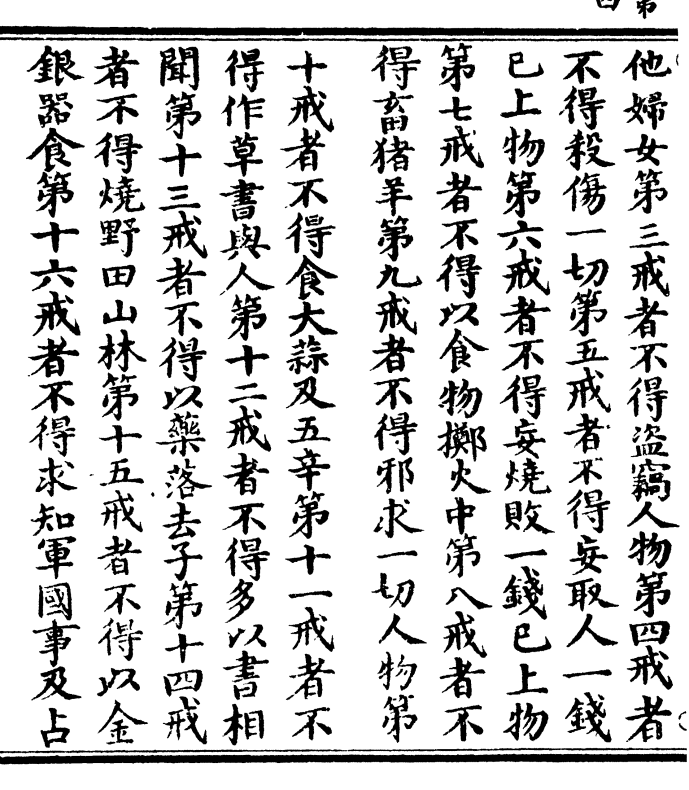 他婦女第三戒者不得盜竊人物第四戒者
不得殺傷一切第五戒者不得妄取人一錢
已上物第六戒者不得妄燒敗一錢已上物
第七戒者不得以食物擲火中第八戒者不
得畜猪羊第九戒者不得邪求一切人物第
十戒者不得食大蒜及五辛第十一戒者不
得作草書與人第十二戒者不得多以書相
聞第十三戒者不得以藥落去子第十四戒
者不得燒野田山林第十五戒者不得以金
銀器食第十六戒者不得求知軍國事及占